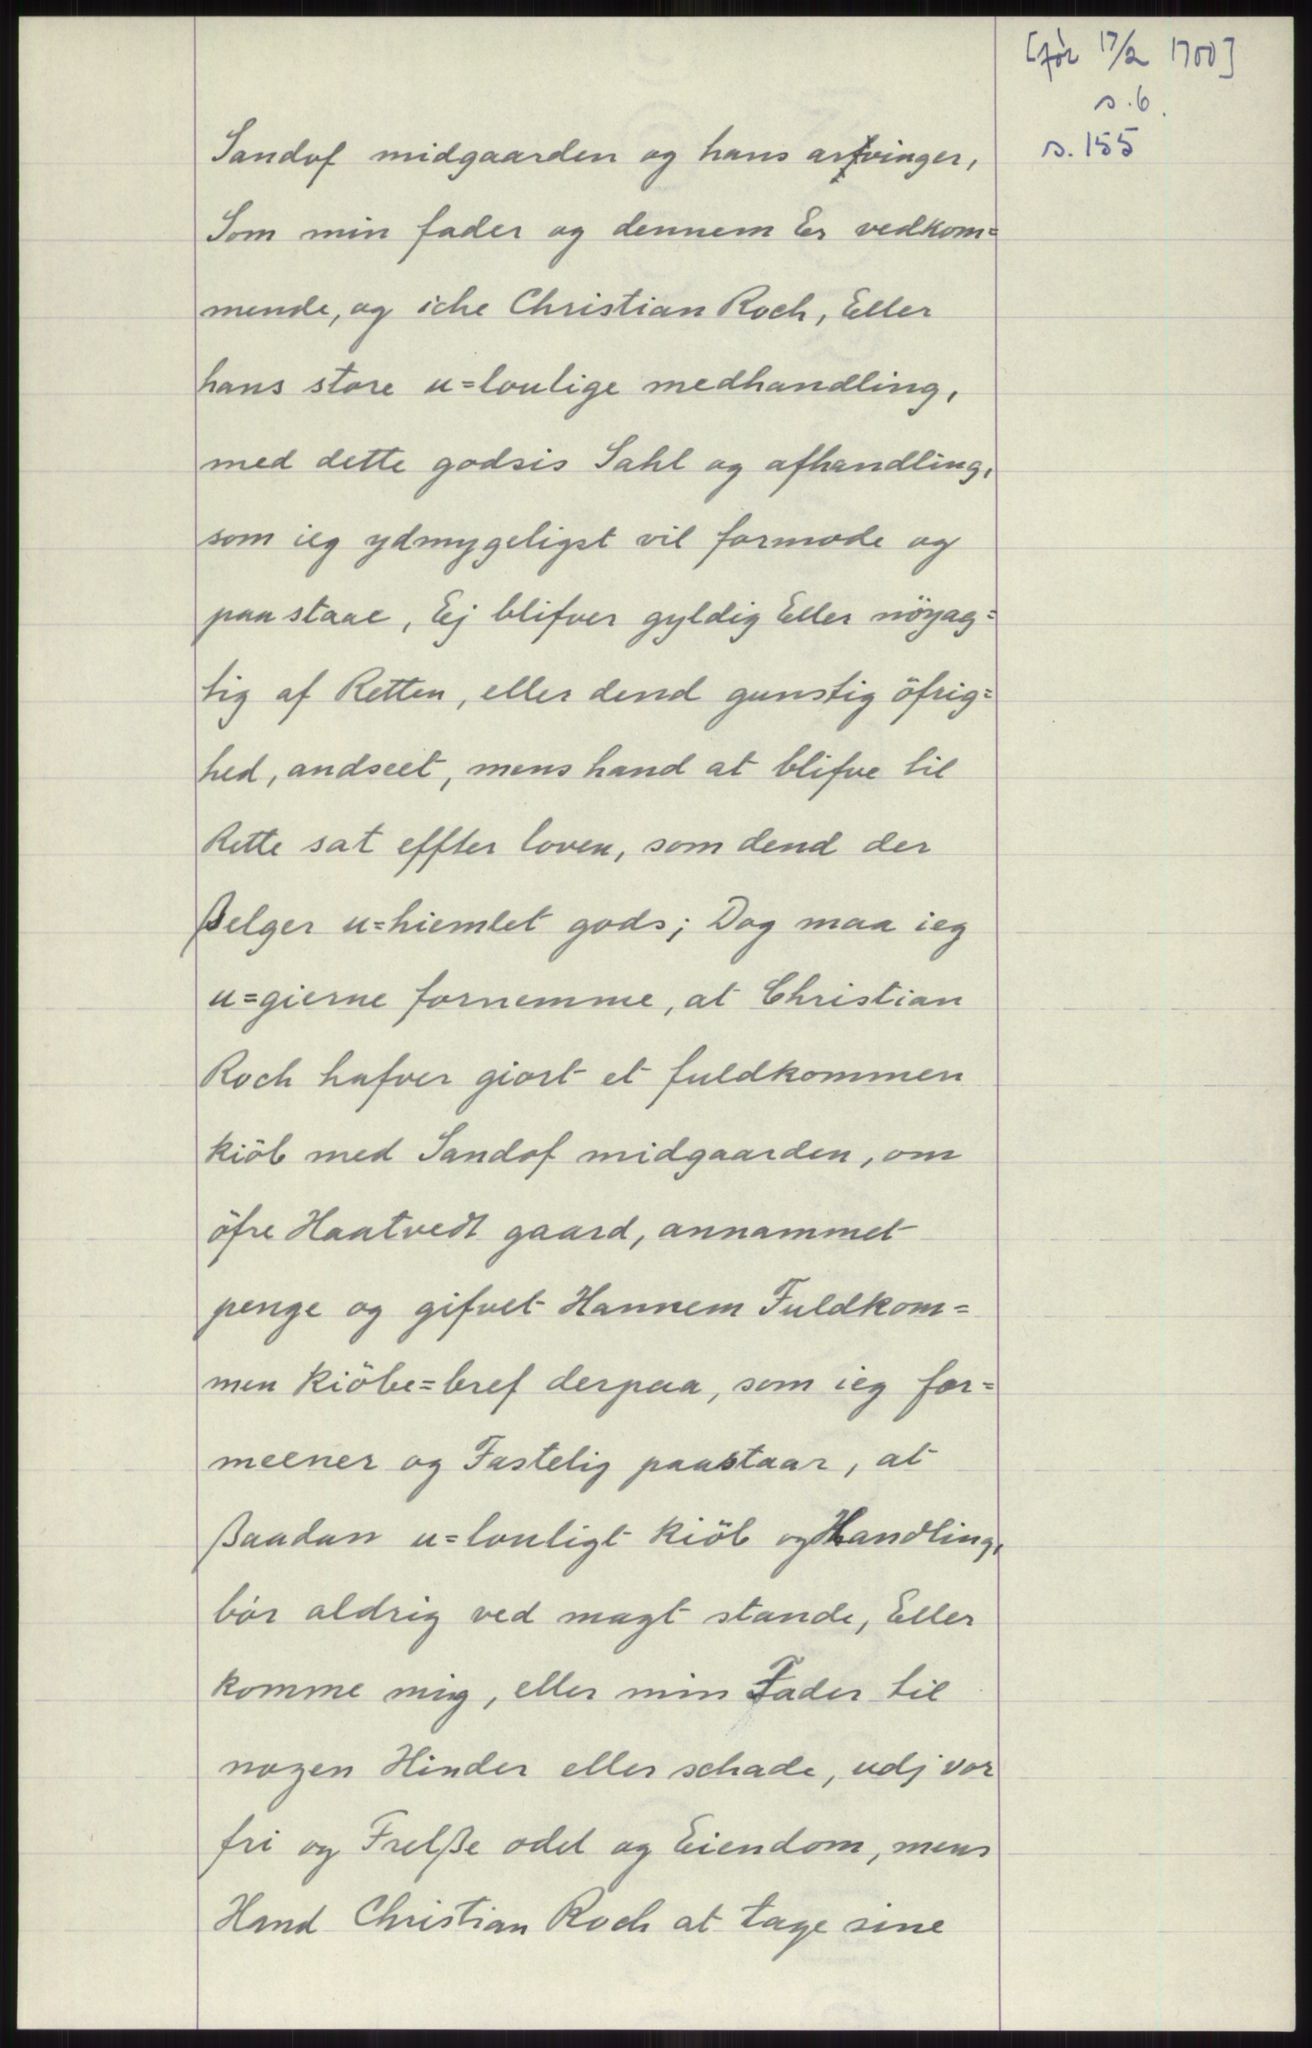 [før 17/2 1700]
s. 6.
s. 155
Sandof midgaarden og hans arfvinger,
Som min fader og dennem Er vedkom=
mende, og iche Christian Roch, Eller
hans store u=loulige medhandling,
med dette godsis Sahl og afhandling,
som ieg ydmygeligst vil formode og
paa staae, Ej blifver gyldig Eller nöyag=
tig af Retten, eller dend gunstig öfrig=
hed, andseet, mens hand at blifve til
Rette sat effter loven, som dend der
ßelger u=hiemlet gods; Dog maa ieg
u=gierne fornemme, at Christian
Roch hafver giort et fuldkommen
kiöb med Sandof midgaarden, om
öfre Haatvedt gaard, annammet
penge og gifvet Hannem Fuldkom=
men kiöbe=bref derpaa, som ieg for=
meener og Fastelig paastaar, at
ßaadan u=louligt kiöb og Handling,
bör aldrig ved magt stande, Eller
komme mig, eller min Fader til
nogen Hinder eller schade, udj vor
fri og Frelße odel og Eiendom, mens
Hand Christian Roch at tage sine